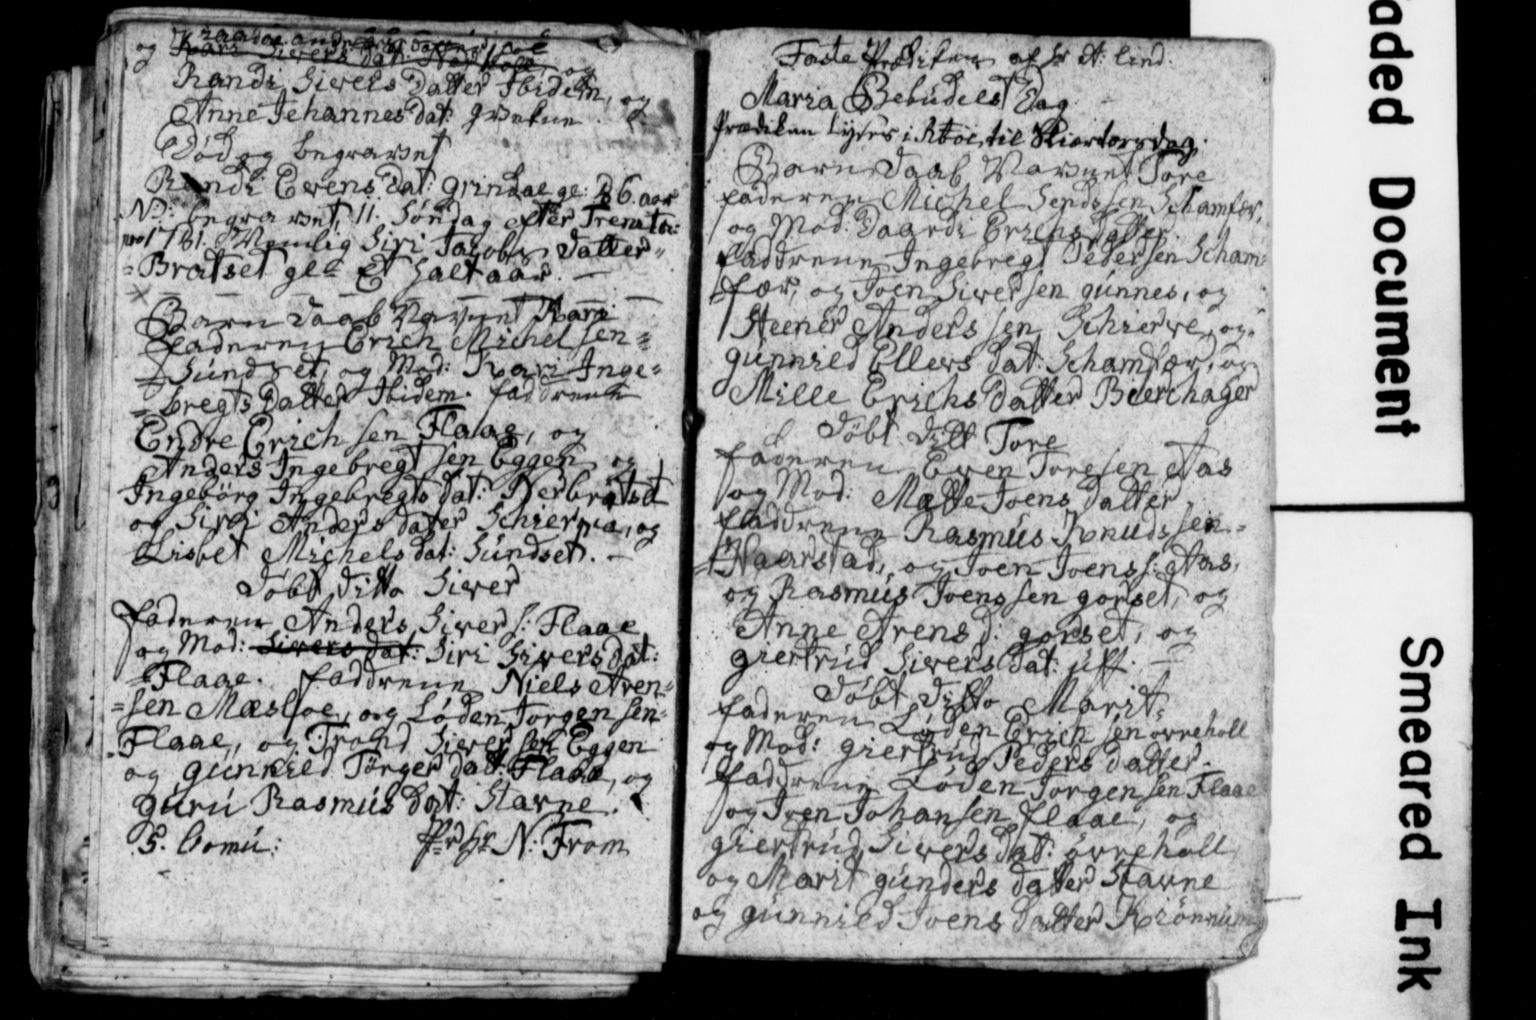 og Kari Sivers dat:
Randi Sivers Datter Ibidem, og
Anne Jehannes dat:
Død og begravet
Randi Evens dat: Grindal ge: 26. aar
NB: begravet 11: Søndag efter Trenita:
1781. Nemlig Siri Jacobs Datter
Bratset gel: Et halt aar. —
Barn Daab Navnet Kari
faderen Erich Michel sen=
Sundset, og Mod: Kari Inge=
=bregts Datter Ibidem. faddrene
Endre Erich sen Flaae, og
Anders Ingebregt sen Eggen, og
Ingebörg Ingebregts dat: Nerbratset
og Siri Anders dater Schierve, og
Lisbet Michels dat: Sundset. —
Döbt Ditto Siver
faderen Anders Siver s: Flaae
og Mod: Sivers dat: Siri Sivers dat:
Flaae. faddrene Niels Aren=
=sen Mæsloe, og Löden Jorgen sen=
Flaae, og Trond Siver sen Eggen
og gunnild Törger dat: Flaae, og
guru Rasmus Dat: Stavne.
S. Comu: Pr Hr N: From
Faste Prediken af Hr A: Lind.
Maria Bebudels Dag
Prædiken lyses i Rtoe, til Skiertorsdag.
Barn Daab Navnet Tore
faderen Michel Sends sen Schamfær,
og Mod: Daardi Erichs Datter.
faddrene Ingebregt Peder sen Scham=
fær, og Joen Siver sen gunnes, og
Steener Anders sen Schierve, og
gunnild Ellevs dat: Schamfær, og
Mille Erichs Datter Beerchager
Döbt Ditt Tore
faderen Even Toresen Aas
og Mod: Mette Joens Datter
faddrene Rasmus Knuds sen=
=Naarstad, og Joen Joens s: Aas,
og Rasmus Joens sen gorset, og
Anne Arens d: gorset, og
giertrud Sivers Dat: uff. —
Döbt Ditto Marit.
faderen Löden Erich sen ovreholl
og Mod: giertrud Peders Datter.
faddrene Löden Jorgen sen Flaae
og Joen Johan sen Flaae, og
giertrud Sivers Dat: övreholl
og Marit gunders Datter Stavne
og gunnild Joens Datter
aded Document
Smeared Ink